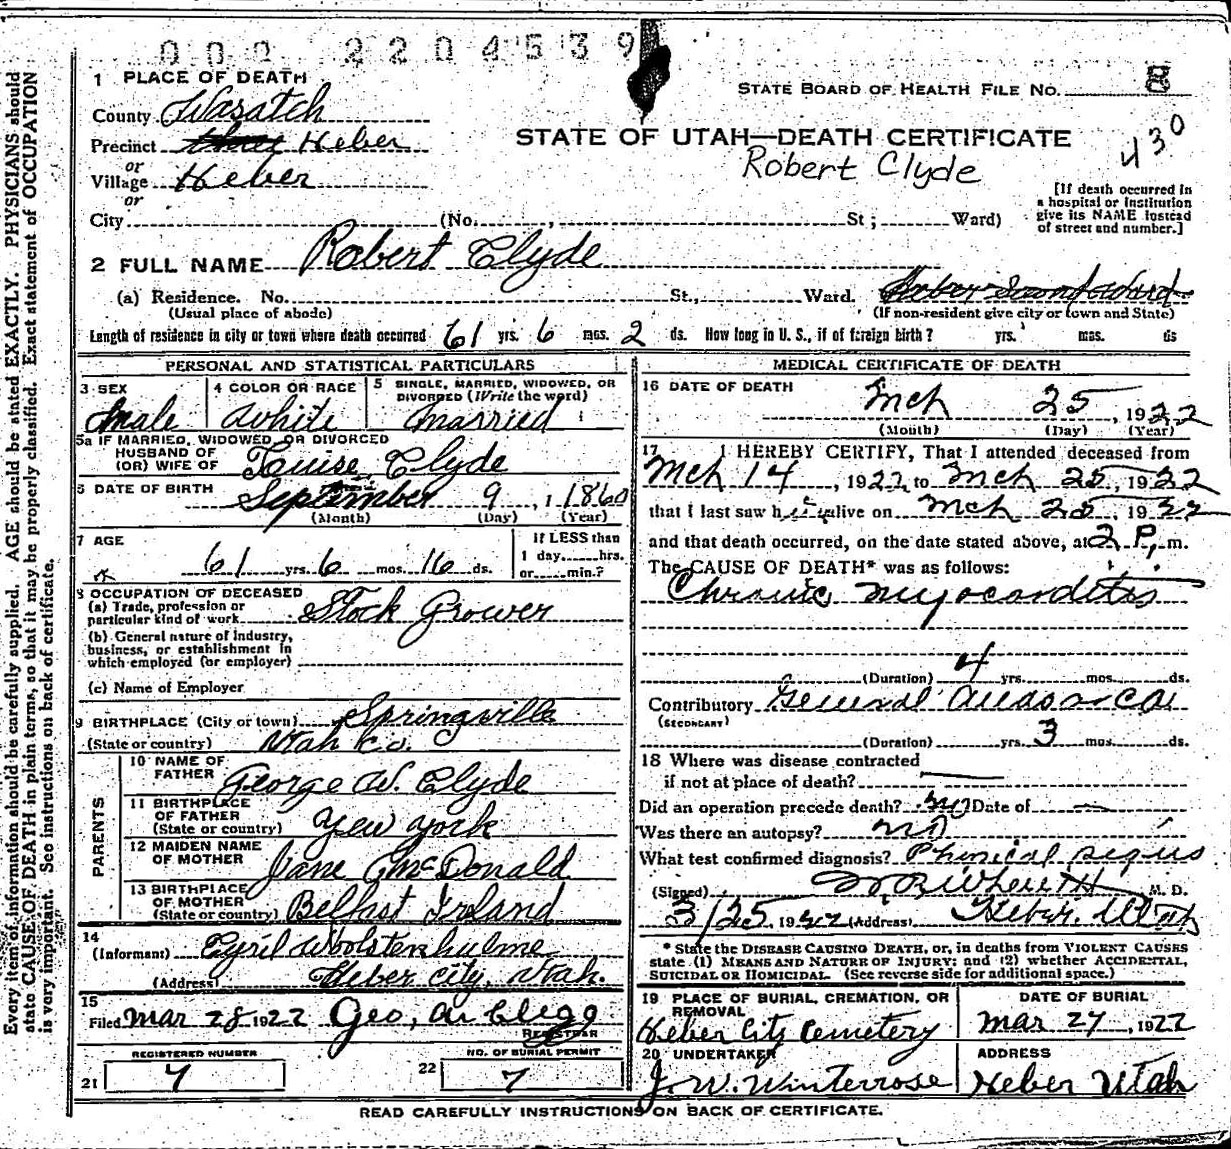 000 2204539
1 PLACE OF DEATH
County Wasatch
STATE BOARD OF HEALTH FILE NO. 8
Precinct Heber
STATE OF UTAH—DEATH CERTIFICATE
430
Robert Clyde
or
Village Heber
or
City (No. , St; Ward)
[If death occurred in
a hospital or institution
give its NAME instead
of street and number.]
2 FULL NAME Robert Clyde
(a) Residence. No. St., Ward.
(Usual place of abode) (If non-resident give city or town and State)
Length of residence in city or town where death occurred 61 yrs. 6 mos. 2 ds. How long in U. S., if of foreign birth? yrs. mos. ds
PERSONAL AND STATISTICAL PARTICULARS
3 SEX
Male
4 COLOR OR RACE
White
5 SINGLE, MARRIED, WIDOWED, OR
DIVORCED (Write the word)
Married
5a IF MARRIED, WIDOWED, OR DIVORCED
HUSBAND OF
(OR) WIFE OF Louise Clyde
6 DATE OF BIRTH September 9, 1 1860
(Month) (Day) (Year)
7 AGE
61 yrs. 6 mos. 16 ds.
If LESS than
1 day, hrs.
or min.?
8 OCCUPATION OF DECEASED
(a) Trade, profession or
particular kind of work Stock Grower
(b) General nature of industry,
business, or establishment in
which employed (or employer)
(c) Name of Employer
9 BIRTHPLACE (City or town) Springville
(State or country) Utah Co.
PARENTS
10 NAME OF
FATHER George W. Clyde
11 BIRTHPLACE
OF FATHER
(State or country) New York
12 MAIDEN NAME
OF MOTHER Jane McDonald
13 BIRTHPLACE
OF MOTHER
(State or country) Belfast Ireland
14
(Informant) Cyril Woolstenhulme
(Address) Heber City, Utah.
15
Filed Mar 28 1922 Geo, A. Clegg
REGISTRAR
REGISTERED NUMBER
21 7
NO. OF BURIAL PERMIT
22 7
MEDICAL CERTIFICATE OF DEATH
16 DATE OF DEATH
Mch 25, 1922
(Month) (Day) (Year)
17 I HEREBY CERTIFY, That I attended deceased from
Mch 14, 1922 to Mch 25, 1922
that I last saw him alive on Mch 25, 1922
and that death occurred, on the date stated above, at 2 P. m.
The CAUSE OF DEATH* was as follows:
Chronic myocarditis
(Duration) 4 yrs. mos. ds.
Contributory General Anasarca
(SECONDARY)
(Duration) yrs. 3 mos. ds.
18 Where was disease contracted
if not at place of death?
Did an operation precede death? no Date of —
Was there an autopsy? no
What test confirmed diagnosis? Physical signs
(Signed) M. D.
3/25, 1922 (Address) Heber, Utah
* State the DISEASE CAUSING DEATH, or, in deaths from VIOLENT CAUSES
state (1) MEANS AND NATURE OF INJURY; and (2) whether ACCIDENTAL,
SUICIDAL OR HOMICIDAL. (See reverse side for additional space.)
19 PLACE OF BURIAL, CREMATION, OR
REMOVAL
Heber City Cemetery
DATE OF BURIAL
Mar 27, 1922
20 UNDERTAKER
J. W. Winterrose
ADDRESS
Heber Utah
READ CAREFULLY INSTRUCTIONS ON BACK OF CERTIFICATE.
Every item of information should be carefully supplied. AGE should be stated EXACTLY. PHYSICIANS should
state CAUSE OF DEATH in plain terms, so that it may be properly classified. Exact statement of OCCUPATION
is very important. See instructions on back of certificate.